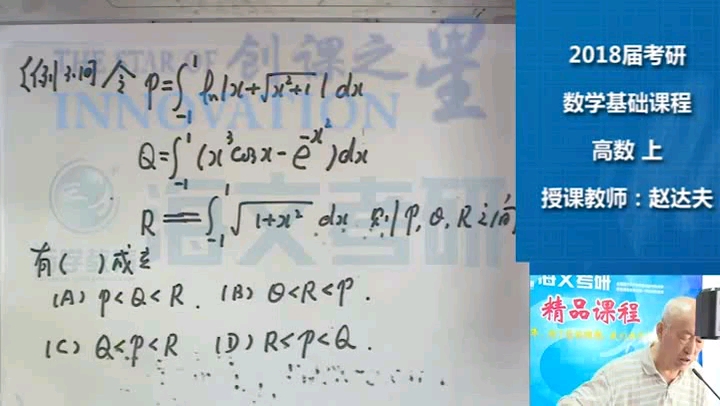 [例3.10] 令 P=∫₋₁¹ ln|x+√(x²+1)| dx
Q=∫₋₁¹ (x³cosx-e^(-x²))dx
R=∫₋₁¹ √(1+x²) dx 则 P,Q,R之间
有( )成立
(A) P<Q<R. (B) Q<R<P.
(C) Q<P<R (D) R<P<Q.
THE STAR OF 创课之星
INNOVATION
海文考研
2018届考研
数学基础课程
高数 上
授课教师：赵达夫
海文考研
精品课程